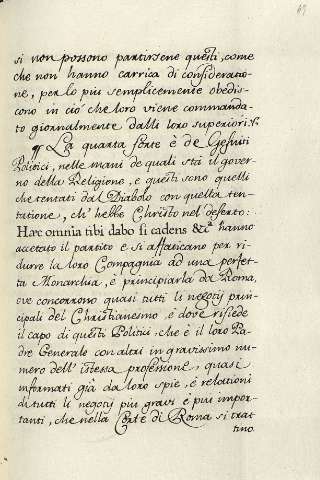 si non possono partirsene questi, come
che non hanno carrica di consideratio-
ne, per lo più semplicemente obedis-
cono in ciò che loro viene commanda-
to giornalmente dalli loro superiori.
¶ La quarta sorte è de Gesuiti
Politici, nelle mani de quali stà il gover-
no della Religione, e questi sono quelli
che tentati dal Diabolo con quella ten-
tatione, ch'hebbe Christo nel deserto:
Hæc omnia tibi dabo si cadens &c.ª hanno
accetato il partito e si affaticano per ri-
durre la loro Compagnia ad una perfet-
ta Monarchia, è principiarla da Roma,
ove concorrono quasi tutti li negotij prin-
cipali del Christianesmo, è dove risiede
il capo di questi Politici, che è il loro Pa-
dre Generale con altri in gravissimo nu-
mero dell'istessa professione, quasi
informati già da loro spie, è relationi
di tutti li negotij più gravi è più impor-
tanti, che nella Corte di Roma si trat
tino